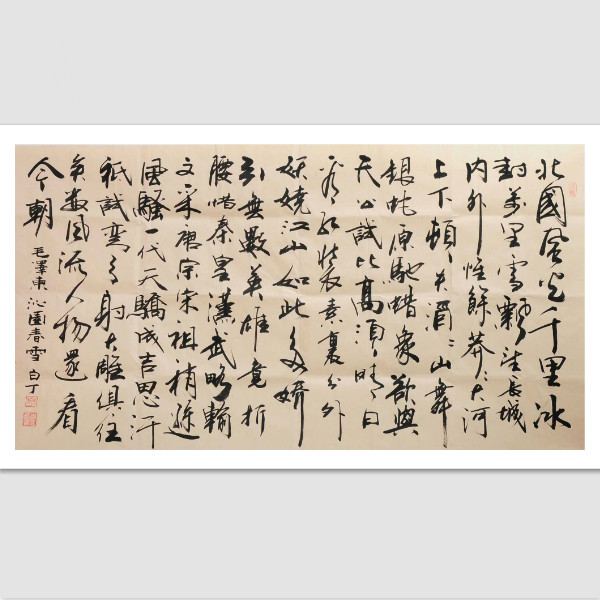 北國風光千里冰
封萬里雪飄望長城
内外惟餘莽〻大河
上下頓失滔〻山舞
銀蛇原馳蜡象欲與
天公試比高須晴日
看紅裝素裹分外
妖嬈江山如此多嬌
引無數英雄竟折
腰惜秦皇漢武略輸
文采唐宗宋祖稍遜
風騷一代天驕成吉思汗
祇識彎弓射大雕俱往
矣數風流人物還看
今朝
毛澤東 沁園春雪 白丁